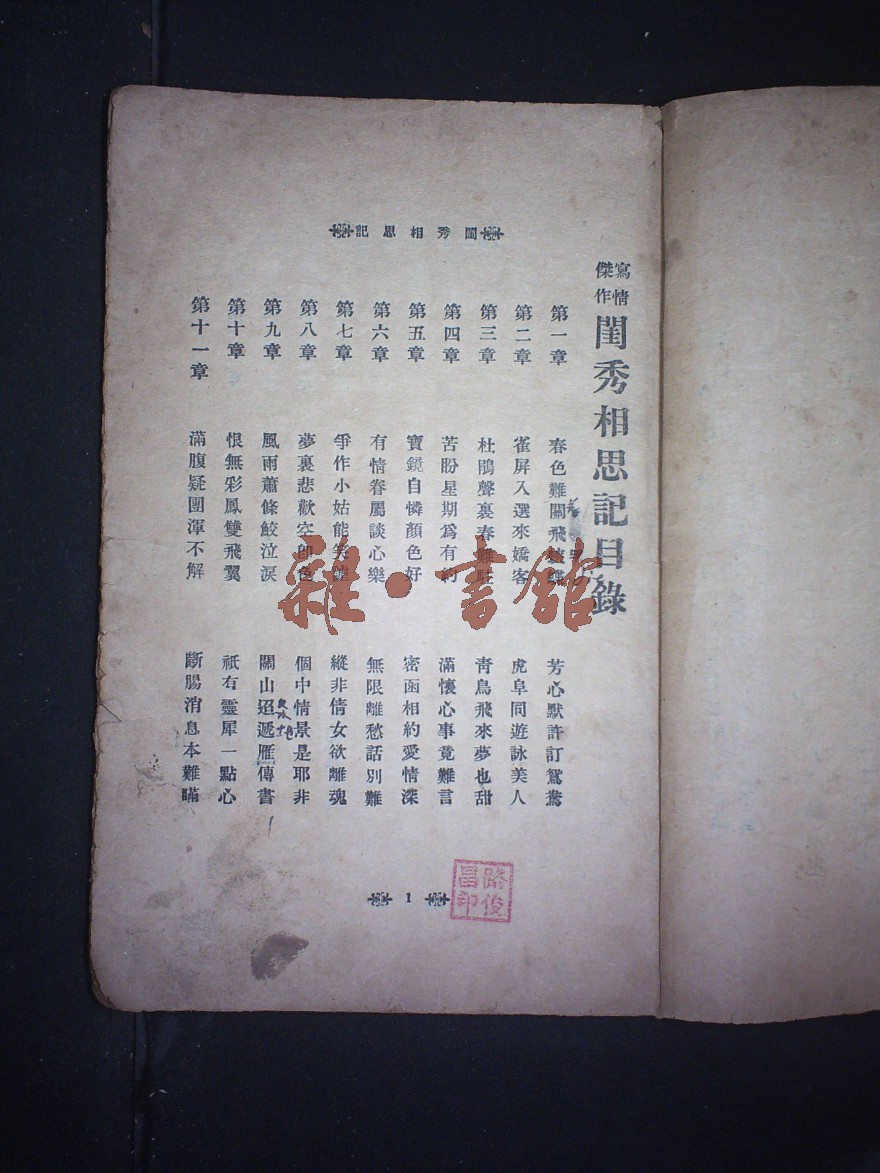 閨秀相思記
寫情傑作 閨秀相思記目錄
第一章 春色難關飛蛺蝶 芳心默許訂鴛鴦
第二章 雀屏入選來嬌客 虎阜同遊詠美人
第三章 杜鵑聲裏春難駐 青鳥飛來夢也甜
第四章 苦盼星期爲有約 滿懷心事竟難言
第五章 寶鏡自憐顏色好 密函相約愛情深
第六章 有情眷屬談心樂 無限離愁話別難
第七章 爭作小姑能笑謔 縱非倩女欲離魂
第八章 夢裏悲歡空卽色 個中情景是耶非
第九章 風雨蕭條鮫泣淚 關山迢遞雁傳書
第十章 恨無彩鳳雙飛翼 祇有靈犀一點心
第十一章 滿腹疑團渾不解 斷腸消息本難瞞
1
俊昌印
雜·書館